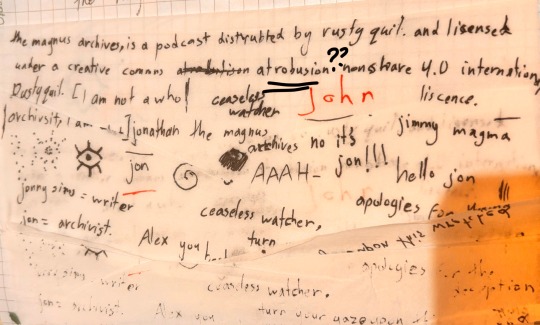 the magnus archives, is a podcast distrubted by rusty quil. and lisensed
under a creative comans atrobusion?? nonshare 4.0 internation
Rustyquil. [I am not a who
ceaseless
watcher
John
liscence.
archivsit, I am
jonathan the magnus
archives no it's
jon!!!
jimmy magma
jon
AAAH-
hello jon
jonny sims = writer
ceaseless watcher,
apologies for
jon = archivist.
Alex you
turn
writer
ceaseless watcher.
apologies for the
deception
jon = archivist.
Alex you
turn your gaze upon